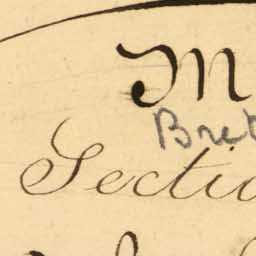 M
Bret
Sectio